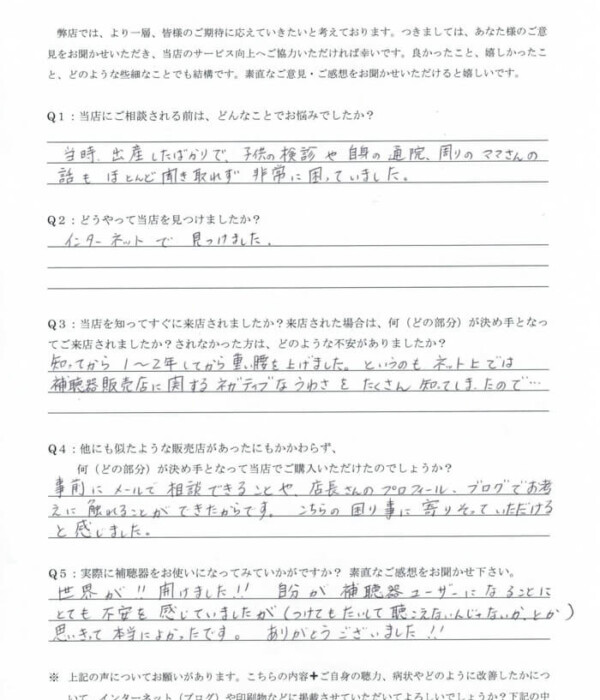 弊店では、より一層、皆様のご期待に応えていきたいと考えております。つきましては、あなた様のご意
見をお聞かせいただき、当店のサービス向上へご協力いただければ幸いです。良かったこと、嬉しかったこ
と、どのような些細なことでも結構です。素直なご意見・ご感想をお聞かせいただけると嬉しいです。
Q1：当店にご相談される前は、どんなことでお悩みでしたか？
当時、出産したばかりで、子供の検診や自身の通院、周りのママさんの
話もほとんど聞き取れず非常に困っていました。
Q2：どうやって当店を見つけましたか？
インターネットで見つけました。
Q3：当店を知ってすぐに来店されましたか？来店された場合は、何（どの部分）が決め手となっ
てご来店されましたか？されなかった方は、どのような不安がありましたか？
知ってから1〜2年してから重い腰を上げました。というのもネット上では
補聴器販売店に関するネガティブなうわさをたくさん知ってしまったので…
Q4：他にも似たような販売店があったにもかかわらず、
何（どの部分）が決め手となって当店でご購入いただけたのでしょうか？
事前にメールで相談できることや、店長さんのプロフィール、ブログでお考
えに触れることができたからです。こちらの困り事に寄りそっていただける
と感じました。
Q5：実際に補聴器をお使いになってみていかがですか？ 素直なご感想をお聞かせ下さい。
世界が!!開けました!!自分が補聴器ユーザーになることに
とても不安を感じていましたが(つけてもたいして聴こえないんじゃないか、とか)
思いきって本当によかったです。ありがとうございました!!
※ 上記の声についてお願いがあります。こちらの内容＋ご自身の聴力、病状やどのように改善したかにつ
いて、インターネット（ブログ）や印刷物などに掲載させていただいてよろしいでしょうか？下記の中